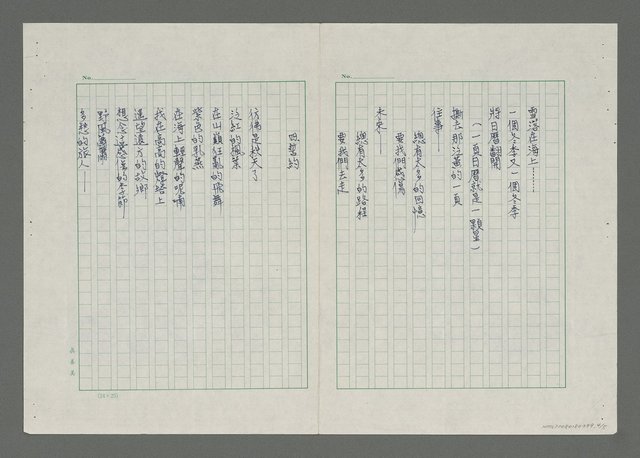 No.
雪落在海上……
一個冬季又一個冬季
將日曆翻開
(一頁日曆就是一顆星)
撕去那泛黃的一頁
往事——
總有太多的回憶
要我們感傷
未來——
總有太多的路程
要我們去走
No.
四 誓約
彷彿是秋天了
泛紅的楓葉
在山巔狂亂的飛舞
紫色的乳燕
在海上輕聲的呢喃
我在高高的燈塔上
遙望遠方的故鄉
想念遙遠的季節
野風
多愁的旅人——
(24×25)